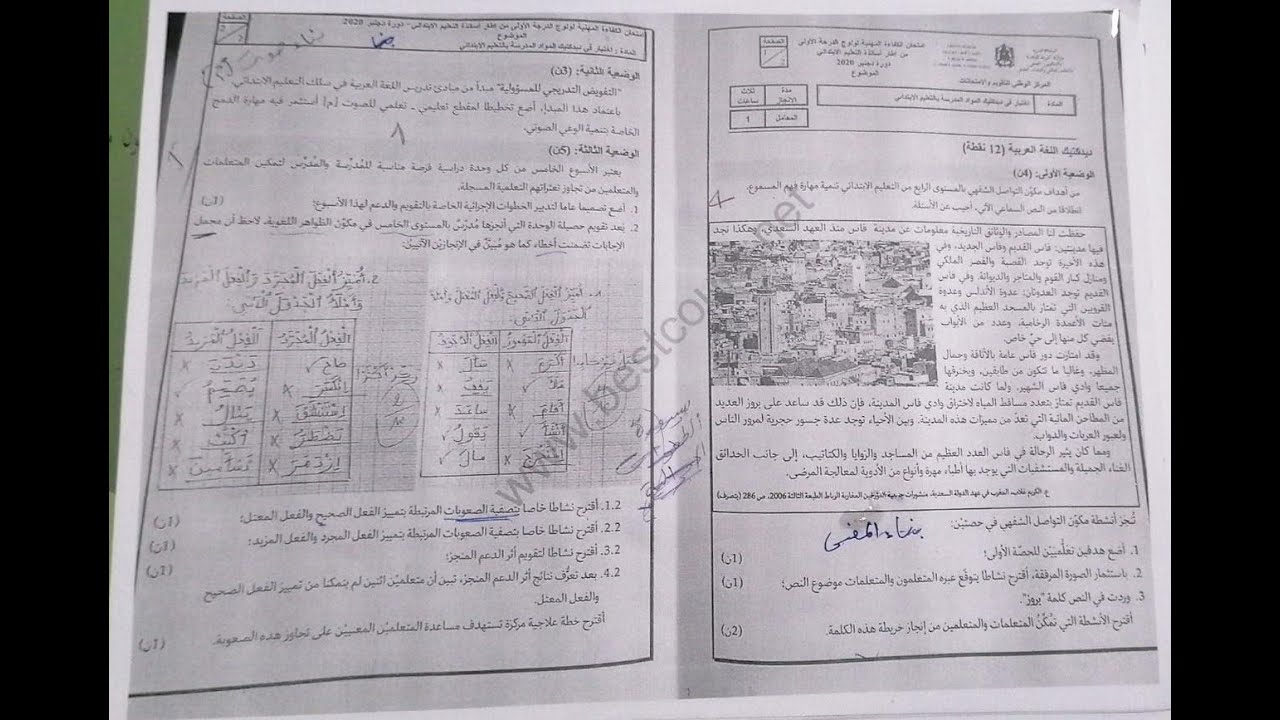 المملكة المغربية
امتحان الكفاءة المهنية لولوج الدرجة الأولى
من إطار أساتذة التعليم الابتدائي
دورة دجنبر 2020
الموضوع
الصفحة
1
2
المركز الوطني للتقويم والامتحانات
المادة
اختبار في ديدكتيك المواد المدرسة بالتعليم الابتدائي
مدة الإنجاز
ثلاث ساعات
المعامل
1
ديدكتيك اللغة العربية (12 نقطة)
الوضعية الأولى: (4ن)
من أهداف مكوّن التواصل الشفهي بالمستوى الرابع من التعليم الابتدائي تنمية مهارة فهم المسموع.
انطلاقا من النص السماعي الآتي، أجيب عن الأسئلة.
حفظت لنا المصادر والوثائق التاريخية معلومات عن مدينة فاس منذ العهد السعدي، وهكذا نجد
فيها مدينتين: فاس القديم وفاس الجديد، وفي
هذه الأخيرة توجد القصبة والقصر الملكي
ومنازل كبار القوم والمتاجر والديوانة. وفي فاس
القديم توجد العدوتان: عدوة الأندلس وعدوة
القرويين التي تمتاز بالمسجد العظيم الذي به
مئات الأعمدة الرخامية، وعدد من الأبواب
يفضي كل منها إلى حيّ خاص.
وقد امتازت دور فاس عامة بالأناقة وجمال
المظهر، وغالبا ما تتكون من طابقين، ويخترقها
جميعا وادي فاس الشهير. ولما كانت مدينة
فاس القديم تمتاز بتعدد مساقط المياه لاختراق وادي فاس المدينة، فإن ذلك قد ساعد على بروز العديد
من المطاحن المائية التي تعدّ من مميزات هذه المدينة. وبين الأحياء توجد عدة جسور حجرية لمرور الناس
ولعبور العربات والدواب.
ومما كان يثير الرحالة في فاس العدد العظيم من المساجد والزوايا والكتاتيب، إلى جانب الحدائق
الغناء الجميلة والمستشفيات التي يوجد بها أطباء مهرة وأنواع من الأدوية لمعالجة المرضى.
ع. الكريم كريم، المغرب في عهد الدولة السعدية، منشورات جمعية المؤرخين المغاربة الرباط الطبعة الثالثة 2006، ص 286 (بتصرف)
تُنجز أنشطة مكوّن التواصل الشفهي في حصتيْن:
بناء المعنى
1. أضع هدفين تعلُّمِيَّيْن للحصّة الأولى؛ (1ن)
2. باستثمار الصورة المرفقة، أقترح نشاطا يتوقّع عبره المتعلمون والمتعلمات موضوع النص؛ (1ن)
3. وردت في النص كلمة "بروز".
أقترح الأنشطة التي تُمكِّنُ المتعلمات والمتعلمين من إنجاز خريطة هذه الكلمة. (2ن)
امتحان الكفاءة المهنية لولوج الدرجة الأولى من إطار أساتذة التعليم الابتدائي - دورة دجنبر 2020
الموضوع
المادة: اختبار في ديدكتيك المواد المدرسة بالتعليم الابتدائي
الصفحة
2
2
الوضعية الثانية: (3ن)
"التفويض التدريجي للمسؤولية" مبدأ من مبادئ تدريس اللغة العربية في سلك التعليم الابتدائي
باعتماد هذا المبدإ، أضع تخطيطا لمقطع تعليمي ـ تعلمي للصوت [م] أستثمر فيه مهارة الدمج
الخاصة بتنمية الوعي الصوتي.
الوضعية الثالثة: (5ن)
يعتبر الأسبوع الخامس من كل وحدة دراسية فرصة مناسبة للمُدرّسة والمُدرّس لتمكين المتعلمات
والمتعلمين من تجاوز تعثراتهم التعلمية المسجلة.
1. أضع تصميما عاما لتدبير الخطوات الإجرائية الخاصة بالتقويم والدعم لهذا الأسبوع؛ (1ن)
2. بَعد تقويم حصيلة الوحدة التي أنجزها مُدرّسٌ بالمستوى الخامس في مكوّن الظواهر اللغوية، لاحظ أن مجمل
الإجابات تضمنت أخطاء كما هو مُبيَّن في الإنجازيْن الآتيين:
1. أُمَيِّزُ الْفِعْلَ الصَّحِيحَ وَالْفِعْلَ الْمُعْتَلَّ وَأَمْلَأُ
الْجَدْوَلَ
الْفِعْلُ الْمَهْمُوزُ الْفِعْلُ الْأَجْوَفُ
أَكْرَمَ سَأَلَ
مَلَأَ يَقِفُ
أَقَامَ سَاعَدَ
أَنْشَأَ يَقُولُ
مَالَ
2. أُمَيِّزُ الْفِعْلَ الْمُجَرَّدَ وَالْفِعْلَ الْمَزِيدَ
وَأَمْلَأُ الْجَدْوَلَ
الْفِعْلُ الْمُجَرَّدُ الْفِعْلُ الْمَزِيدُ
صَاحَ
اِسْتَنْشَقَ
1.2. أقترح نشاطا خاصا بتصفية الصعوبات المرتبطة بتمييز الفعل الصحيح والفعل المعتل؛ (1ن)
2.2. أقترح نشاطا خاصا بتصفية الصعوبات المرتبطة بتمييز الفعل المجرد والفعل المزيد؛ (1ن)
3.2. أقترح نشاطا لتقويم أثر الدعم المنجز؛ (1ن)
4.2. بعد تعرُّف نتائج أثر الدعم المنجَز، تبين أن متعلميْن اثنين لم يتمكنا من تمييز الفعل الصحيح
والفعل المعتل.
أقترح خطة علاجية مركزة تستهدف مساعدة المتعلميْن المعنييْن على تجاوز هذه الصعوبة. (1ن)